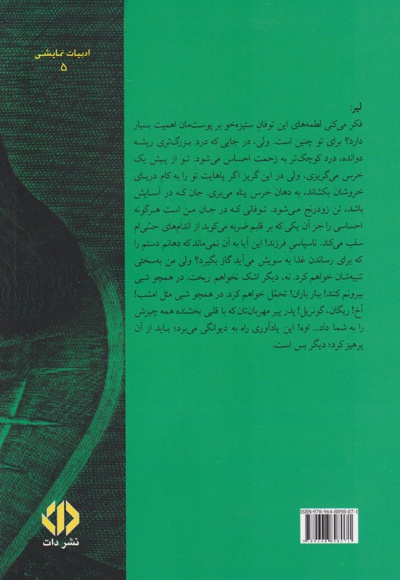 ادبیات نمایشی
۵
لیر:
فکر می‌کنی لطمه‌های این توفانِ ستیزه‌خو بر پوست‌مان اهمیت بسیار
دارد؟ برای تو چنین است. ولی، در جایی که دردِ بزرگ‌تری ریشه
دوانده، دردِ کوچک‌تر به زحمت احساس می‌شود. تو از پیش یک
خرس می‌گریزی، ولی در این گریز اگر پاهایت تو را به کام دریای
خروشان بکشاند، به دهان خرس پناه می‌بری. جان که در آسایش
باشد، تن زودرنج می‌شود. توفانی که در جان من است هرگونه
احساسی را جز آن یکی که بر قلبم ضربه می‌کوبد از اندام‌های حسّی‌ام
سلب می‌کند. ناسپاسیِ فرزند! این آیا به آن نمی‌ماند که دهانم دستم را
که برای رساندن غذا به سویش می‌آید گاز بگیرد؟ ولی من به‌سختی
تنبیه‌شان خواهم کرد. نه، دیگر اشک نخواهم ریخت. در همچو شبی
بیرونم کنند! ببار باران! تحمّل خواهم کرد. در همچو شبی مثل امشب!
آخ! ریگان، گونریل! پدر پیر مهربان‌تان که با قلبی بخشنده همه چیزش
را به شما داد... اوه! این یادآوری راه به دیوانگی می‌برد؛ باید از آن
پرهیز کرد؛ دیگر بس است.
ISBN:978-964-8898-07-1
نشر دات